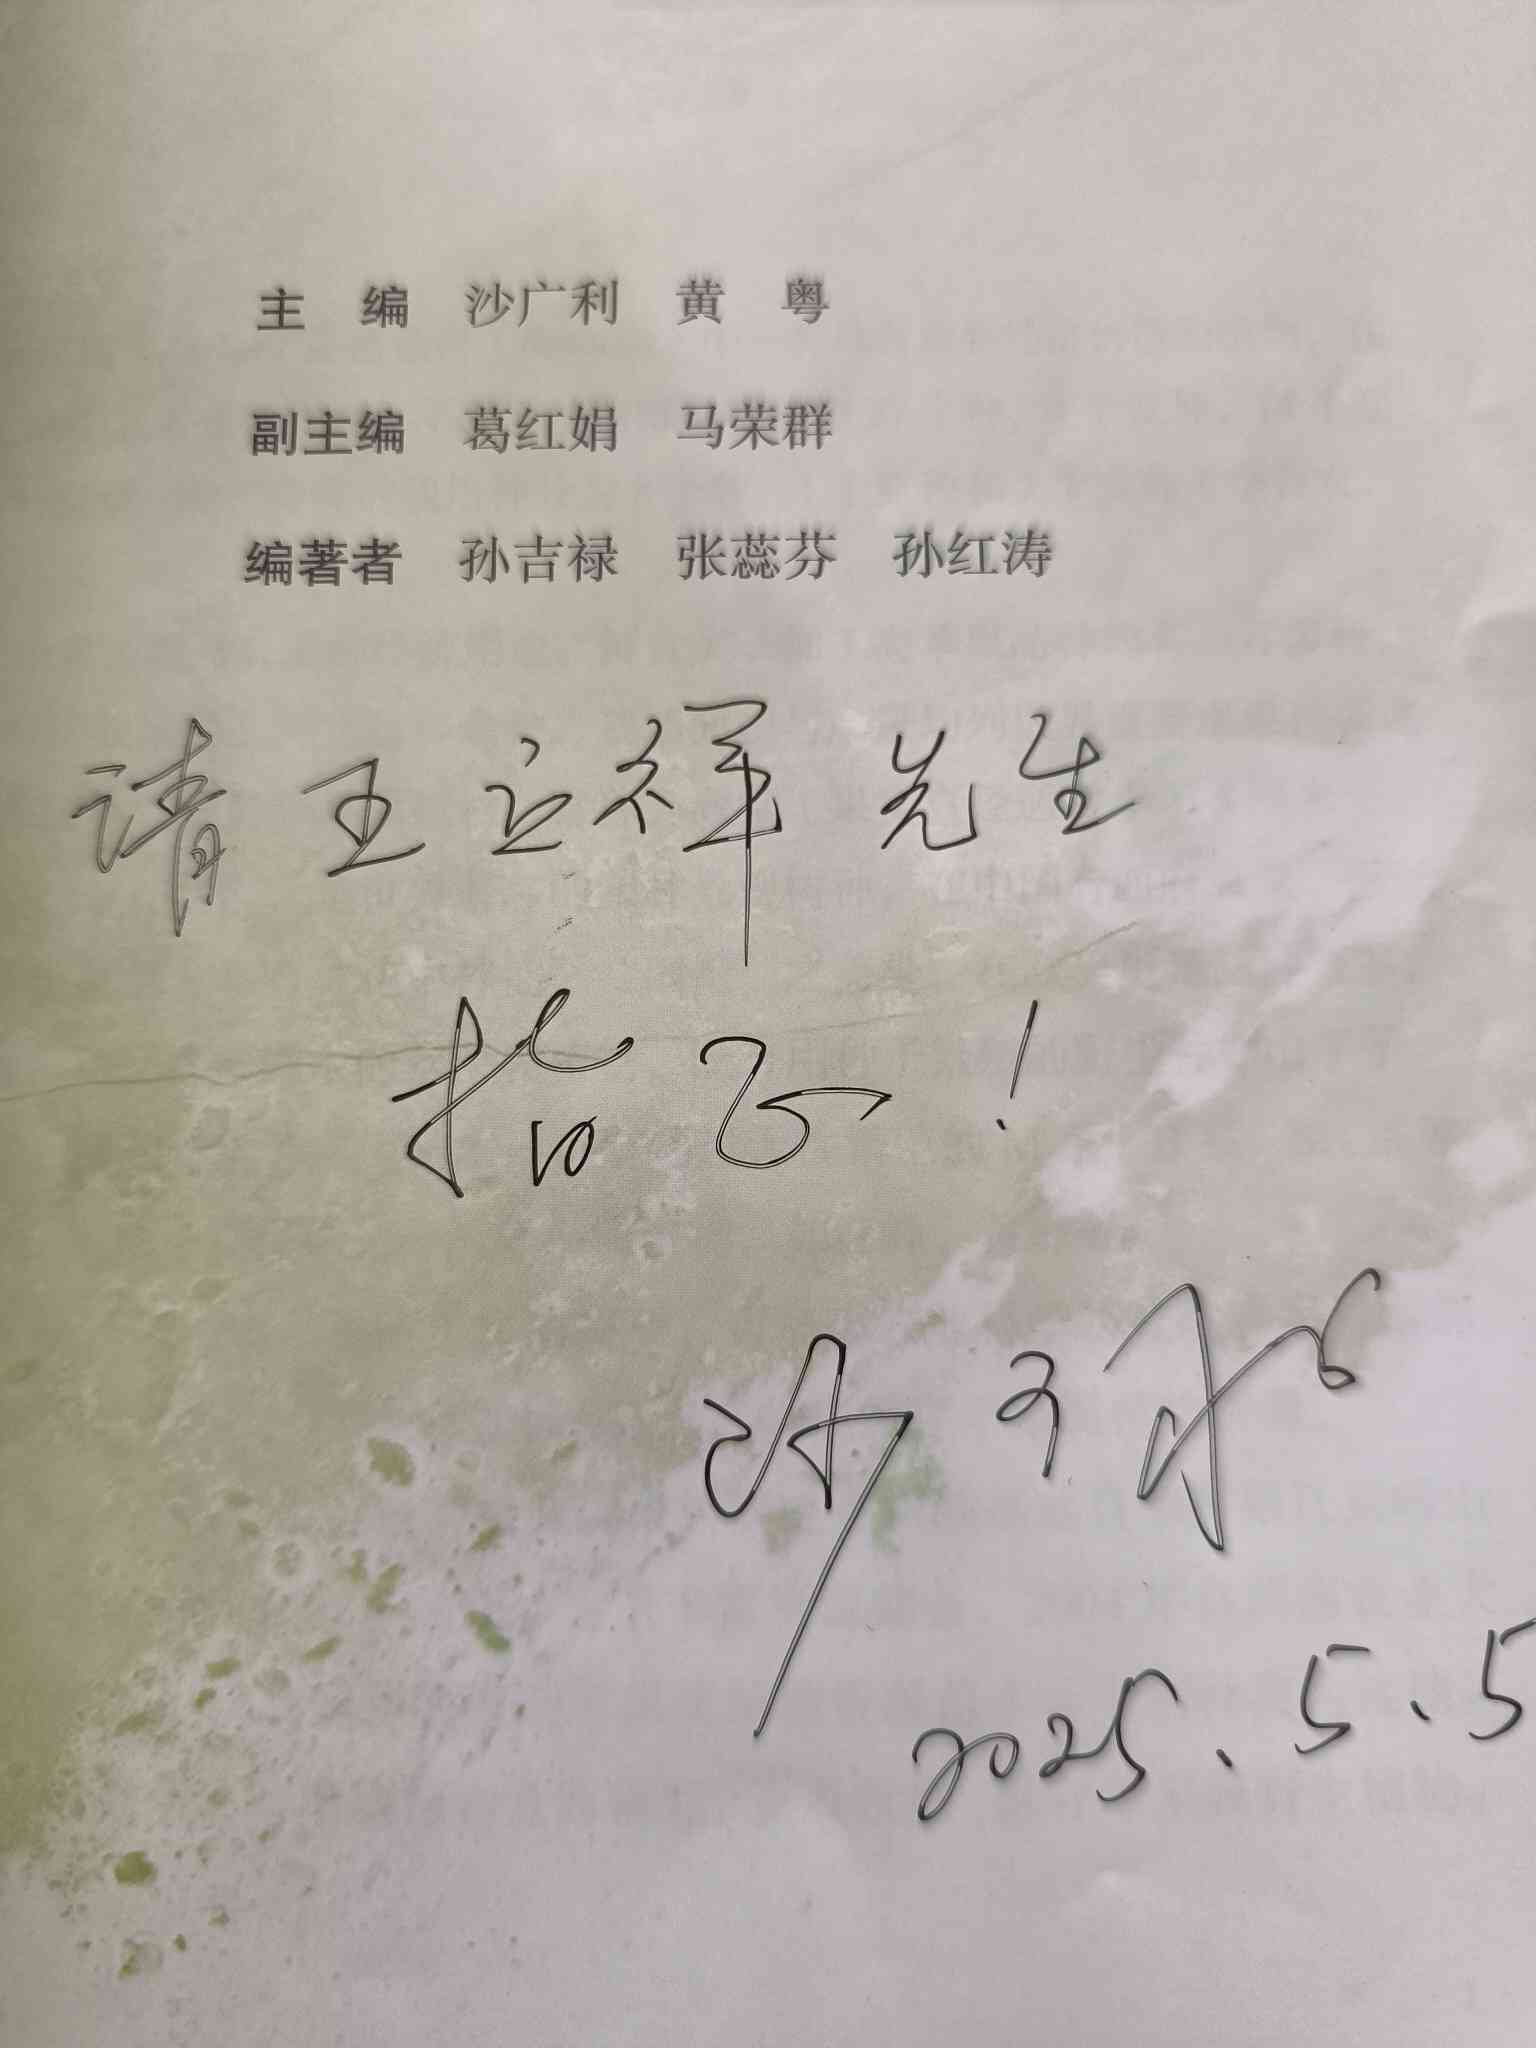 主 编 沙广利 黄 粤
副主编 葛红娟 马荣群
编著者 孙吉禄 张蕊芬 孙红涛
请王立祥先生
指正!
沙广利
2025.5.5